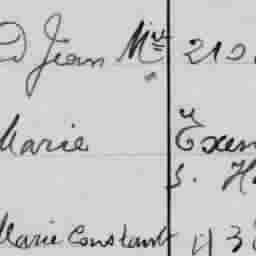 Jean Mie 210
Marie Exem
s. H
Marie Constant 43